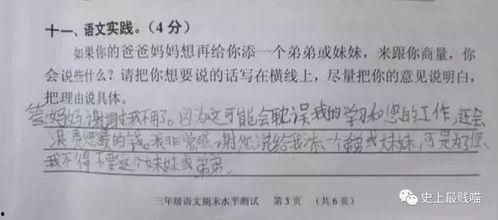 十一、语文实践。(4分)
如果你的爸爸妈妈想再给你添一个弟弟或妹妹，来跟你商量，你
会说些什么？请把你想要说的话写在横线上，尽量把你的意见说明白，
把理由说具体。
答妈妈谢谢我不用了。因为这可能会耽误我的学习和您的工作，还会
浪费您的钱。我非常感谢您说给我添一个弟弟或妹妹，可是为了您、
我不得不要这个妹妹或弟弟。
三年级语文期末水平测试 第3页 (共6页)
史上最贱喵